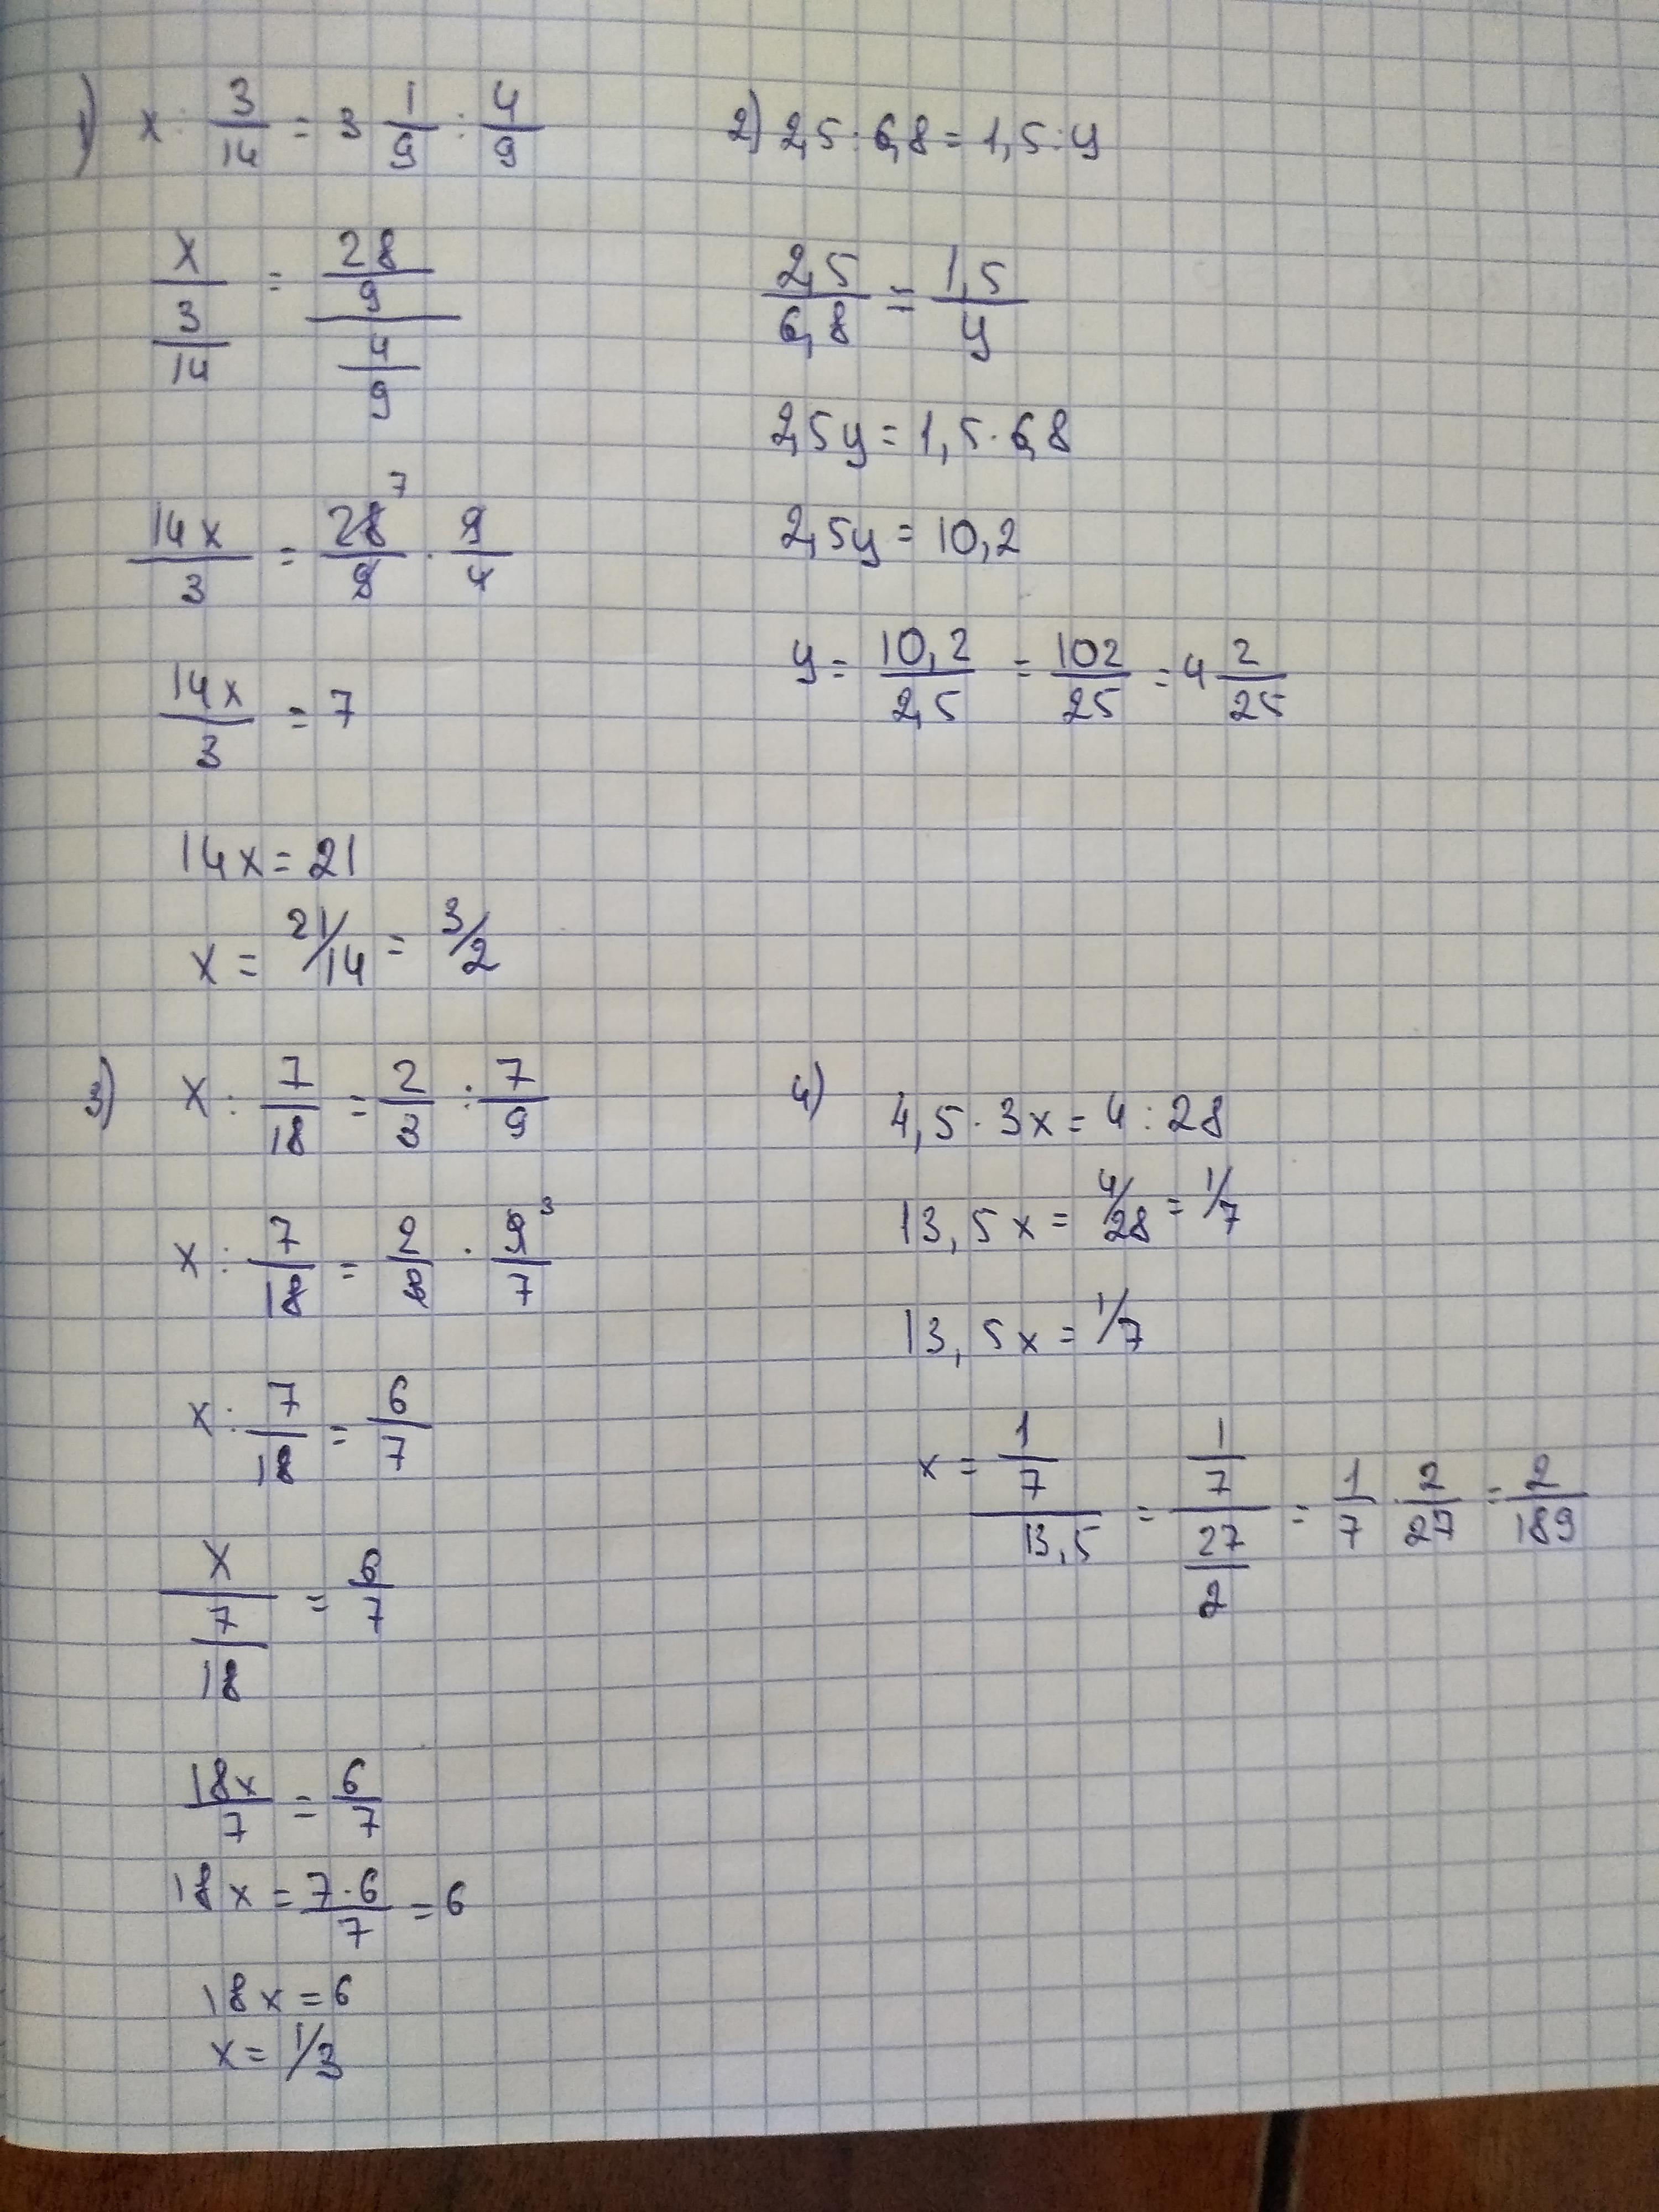 1) x : 3/14 = 3 1/9 : 4/9
x/(3/14) = (28/9)/(4/9)
14x/3 = 28/9 · 9/4
7
14x/3 = 7
14x = 21
x = 21/14 = 3/2
2) 2,5 : 6,8 = 1,5 : y
2,5/6,8 = 1,5/y
2,5y = 1,5 · 6,8
2,5y = 10,2
y = 10,2/2,5 = 102/25 = 4 2/25
3) x : 7/18 = 2/3 : 7/9
x : 7/18 = 2/3 · 9/7
3
x : 7/18 = 6/7
x/(7/18) = 6/7
18x/7 = 6/7
18x = 7·6/7 = 6
18x = 6
x = 1/3
4) 4,5 · 3x = 4 : 28
13,5x = 4/28 = 1/7
13,5x = 1/7
x = (1/7)/13,5 = (1/7)/(27/2) = 1/7 · 2/27 = 2/189